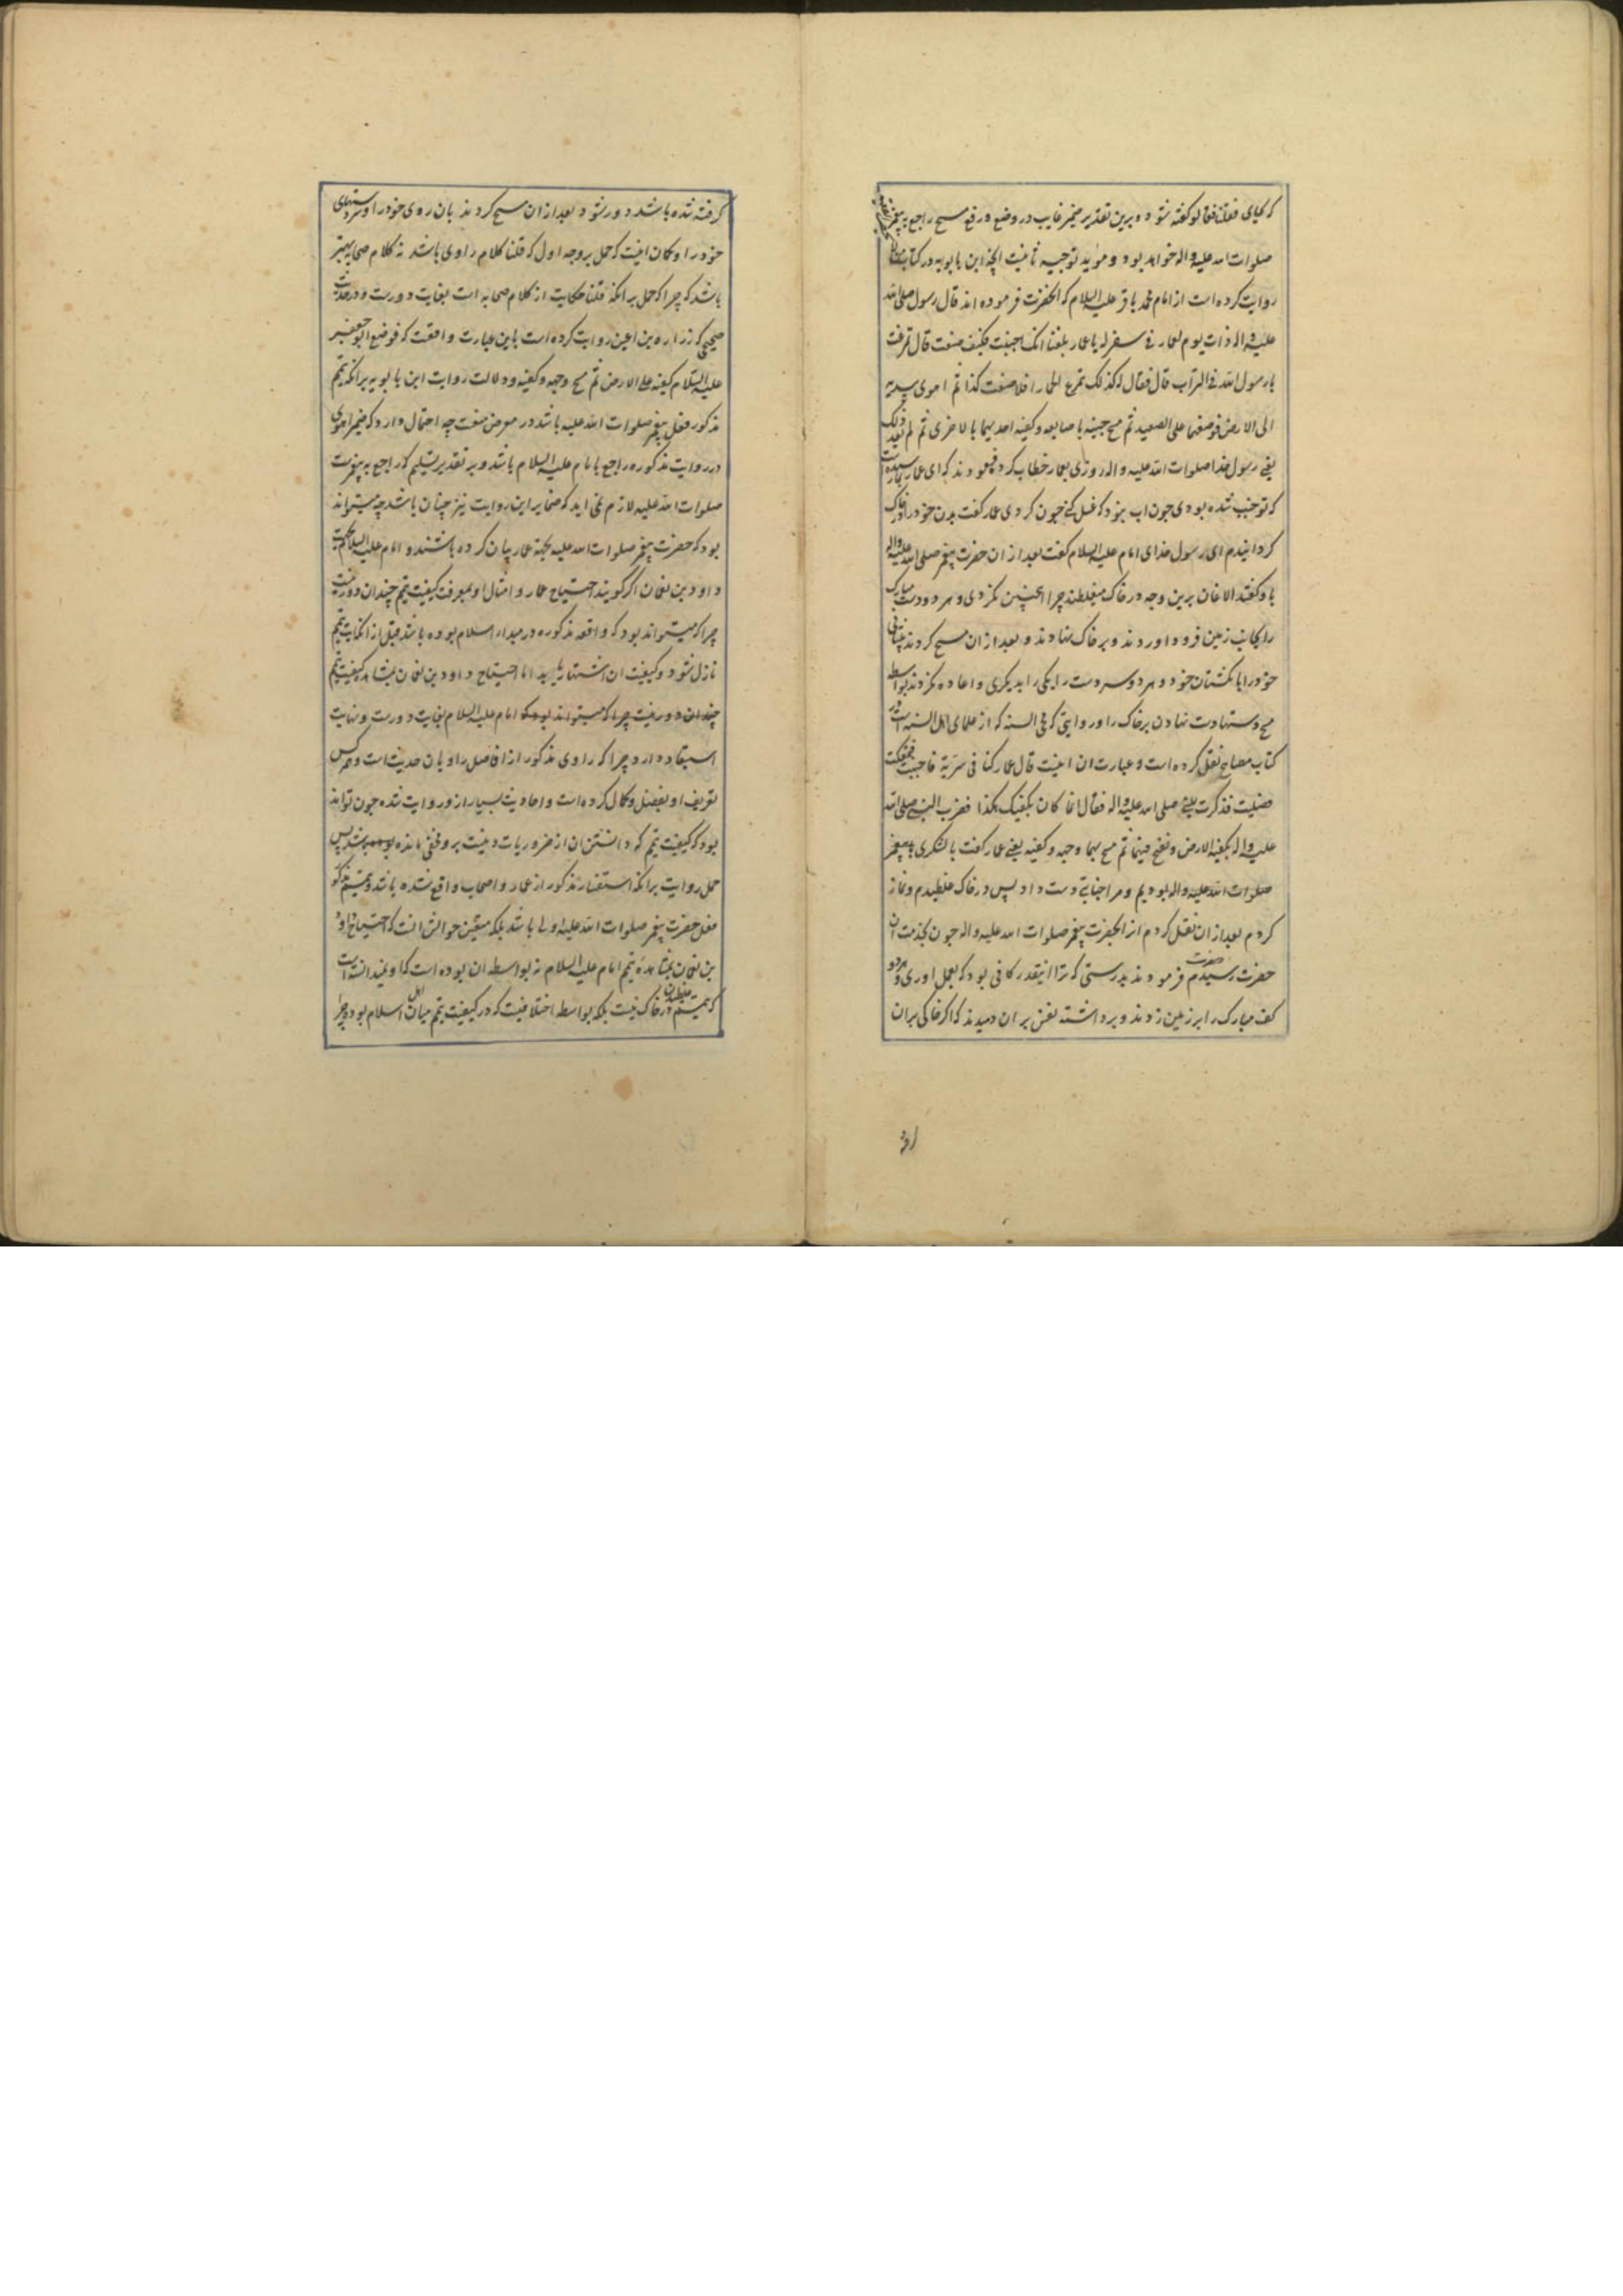 که بجای فقلنا فقالو گفته شود و برین تقدیر ضمیر غایب در وضع و رفع مسح راجع به پیغمبر
صلوات الله علیه واله خواهد بود و موید توجیه ثانیت انچه ابن بابویه در کتاب
روایت کرده است از امام محمد باقر علیه السلام که انحضرت فرموده اند قال رسول صلی الله
علیه واله ذات یوم لعمار فی سفر له یا عمار بلغنا انک اجنبت فکیف صنعت قال تمرغت
یا رسول الله فی التراب قال فقال له کذلک تمرغ الحمار افلا صنعت کذا ثم اهوی بیدیه
الی الارض فوضعهما علی الصعید ثم مسح جبینه باصابعه و کفیه احدیهما بالاخری ثم لم یعد ذلک
یعنی رسول خدا صلوات الله علیه واله روزی بعمار خطاب کرد فرمودند که ای عمار بما رسیده است
که تو جنب شده بودی چون اب نبود که غسل کنی چون کردی عمار گفت بدن خود را در خاک
گردانیدم ای رسول خدای امام علیه السلام گفت بعد از ان حضرت پیغمبر صلی الله علیه واله
باو گفتند الاغان برین وجه در خاک میغلطند چرا اینچنین نکردی و هر دو دست مبارک
را بجانب زمین فرود اوردند و بر خاک نهادند و بعد از ان مسح کردند پیشانی
خود را بانگشتان خود و هر دو سر دست را یکی را بدیگری و اعاده نکردند بواسطه
مسح دستها دست نهادن بر خاک را و روایتی که محی السنه که از علمای اهل السنه است در
کتاب مصابیح نقل کرده است و عبارت ان اینست قال عمار کنا فی سریة فاجنبت فتمعکت
فصلیت فذکرت للنبی صلی الله علیه واله فقال انما کان یکفیک هکذا فضرب النبی صلی الله
علیه واله بکفیه الارض و نفخ فیهما ثم مسح بهما وجهه و کفیه یعنی عمار گفت با لشکری با پیغمبر
صلوات الله علیه واله بودیم و مرا جنابتی دست داد پس در خاک غلطیدم و نماز
کردم بعد از ان نقل کردم از انحضرت پیغمبر صلوات الله علیه واله چون بخدمت ان
حضرت رسیدم حضرت فرمودند بدرستی که ترا اینقدر کافی بود که بعمل اوری و هر دو
کف مبارک را بر زمین زدند و برداشته نفس بر ان دمیدند که اگر خاکی بران
گرفته شده باشد دور شود و بعد از ان مسح کردند بان روی خود را و سر دستهای
خود را و گمان اینست که حمل بر وجه اول که قلنا کلام راوی باشد نه کلام صحابه بهتر
باشد که چرا که حمل بر انکه قلنا حکایت از کلام صحابه است بغایت دورست و در حدیث
صحیحی که زراره بن اعین روایت کرده است باین عبارت واقعست که فوضع ابو جعفر
علیه السلام کفیه علی الارض ثم مسح وجهه و کفیه و دلالت روایت ابن بابویه بر انکه تیمم
مذکور فعل پیغمبر صلوات الله علیه باشد در معرض منعست چه احتمال دارد که ضمیر اهوی
در روایت مذکوره راجع بامام علیه السلام باشد و بر تقدیر تسلیم که راجع به پیغمبرست
صلوات الله علیه لازم نمی اید که ضمایر این روایت نیز چنان باشد چه میتواند
بود که حضرت پیغمبر صلوات الله علیه بجهة عمار بیان کرده باشند و امام علیه السلام بجهت
داود بن نعمان اگر گویند احتیاج عمار و امثال او بمعرفت کیفیت تیمم چندان دور نیست
چرا که میتواند بود که واقعه مذکوره در مبداء اسلام بوده باشد قبل از انکه ایت تیمم
نازل شود و کیفیت ان اشتهار یابد اما احتیاج داود بن نعمان بمشاهده کیفیت تیمم
چندان دور نیست چرا که میتواند بود که امام علیه السلام بغایت دورست و نهایت
استبعاد دارد چرا که راوی مذکور از افاضل راویان حدیث است و همه کس
تعریف او بفضل و کمال کرده است و احادیث بسیار از و روایت شده چون تواند
بود که کیفیت تیمم که دانستن ان از ضروریات دینیست بر و مخفی مانده باشد پس
حمل روایت بر انکه استفسار مذکور از عمار و اصحاب واقع شده باشد و تیمم مذکور
فعل حضرت پیغمبر صلوات الله علیه اولی باشد بلکه متعین جوابش انست که احتیاج داود
بن نعمان بمشاهده تیمم امام علیه السلام نه بواسطه ان بوده است که او نمیدانسته است
که تیمم غلطیدن در خاک نیست بلکه بواسطه اختلافیست که در کیفیت تیمم میان اهل اسلام بوده چرا